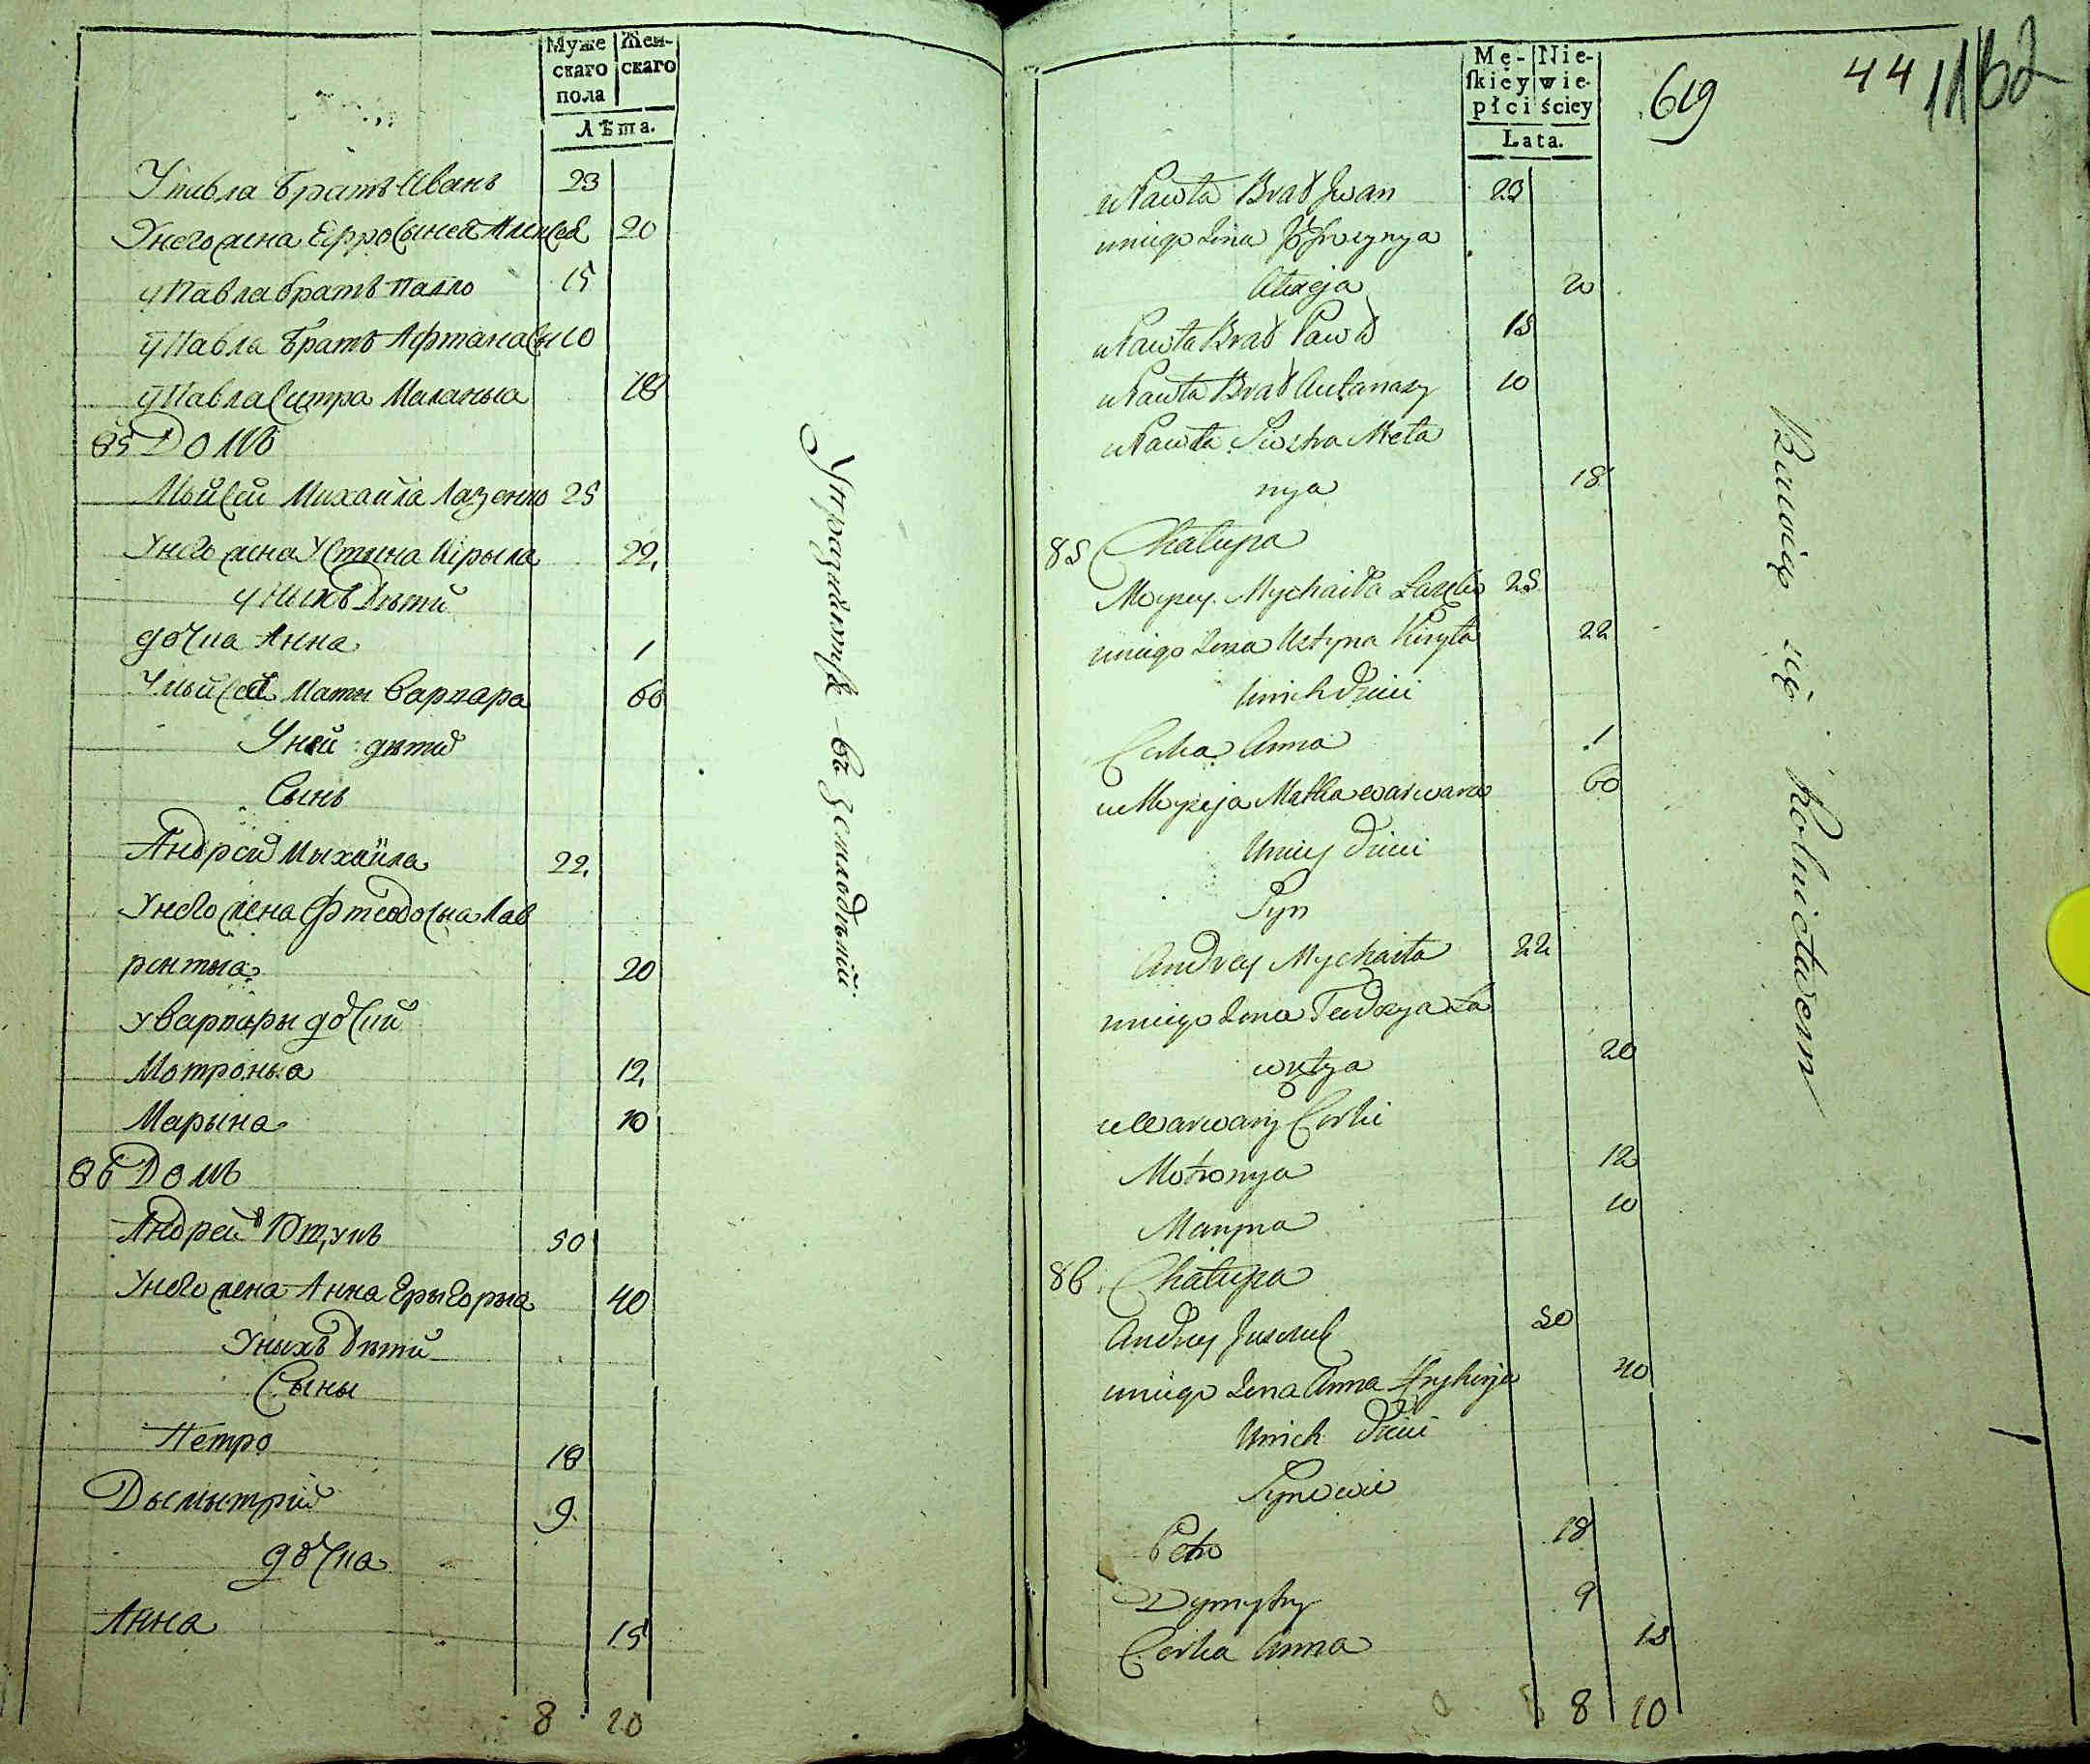 Муже Жен-
скаго скаго
пола
Лѣта.
У павла братъ Иванъ 23
У него жена Ефросынея Алексея 20
у Павла братъ Павло 15
у Павла братъ Афтанасы 10
у Павла Систра Миланыа 18
85 Домъ
Мойсей Михайла Лазенко 25
У него жена Устына Кірыла 22.
у ныхъ дѣти
дочка Анна 1
У Мойсея Маты Варвара 60
У ней дѣти
Сынъ
Андрей Мыхайла 22.
У него жена Фтеодосыа Лав
рентыа 20
у Варвары дочки
Мотроныа 12.
Марына 10
86 Домъ
Андрей 50
У него жена Анна Грыгорыа 40
У ныхъ дѣти
Сыны
Петро 18
Дымытрій 9.
дочка
Анна 15
8 10
Упражняится въ земледѣлiи.
Mę- Nie-
ſkiey wie-
płci ściey
Lata.
619
44
1162
u Pawła Brat Iwan 23
u niego żona Jefrosynya
Alexeja 20
u Pawła Brat Pawło 15
u Pawła Brat Autanazy 10
u Pawła Siostra Meła
nya 18
85 Chałupa
Moysey Mychaiła Łazko 25
u niego żona Ustyna Kiryła 22
U nich dzieci
Corka Anna 1
u Moyseja Matka Warwara 60
U niey dzieci
Syn
Andrey Mychaiła 22
u niego żona Teodozya Ła
wrętya 20
u Warwary Corki
Motronya 12
Maryna 10
86 Chałupa
Andrey 50
u niego żona Anna Hryhorja 40
U nich dzieci
Synowie
Petro 18
Dymytry 9
Corka Anna 15
8 10
Bawiący się Rolnictwem